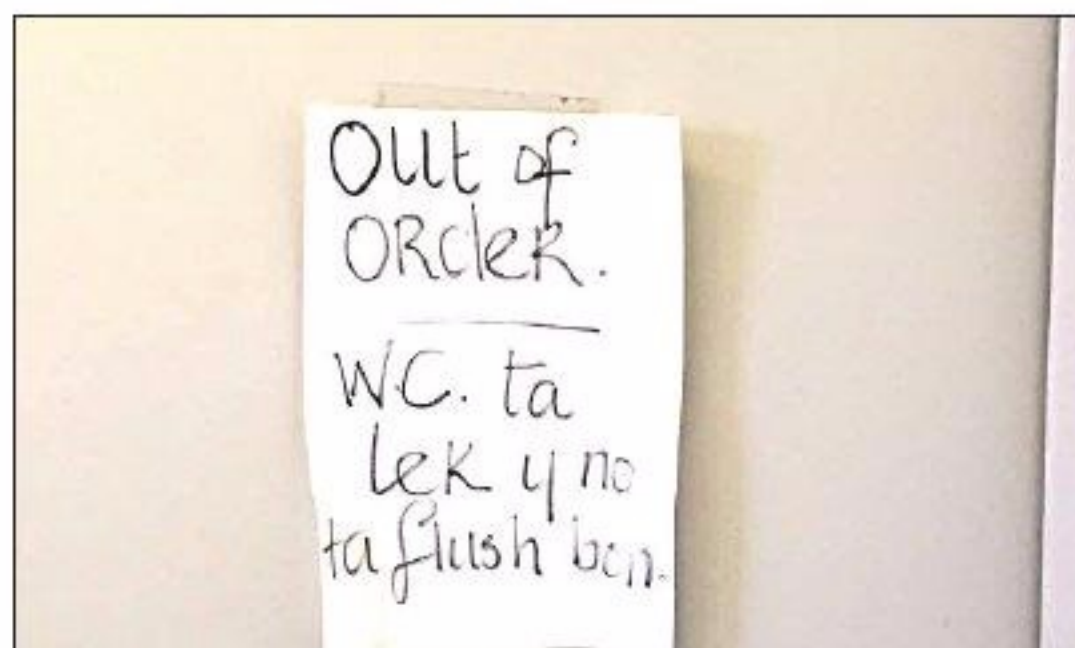 Out of
ORdeR.
W.C. ta
lek y no
ta flush bon.